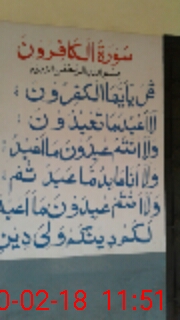 سورة الكافرون
بسم الله الرحمن الرحيم
قل يايها الكفرون
لا اعبد ما تعبدون
ولا انتم عبدون ما اعبد
ولا انا عابد ما عبد تم
ولا انتم عبدون ما اعبد
لكم دينكم ولى دين
0-02-18 11:51